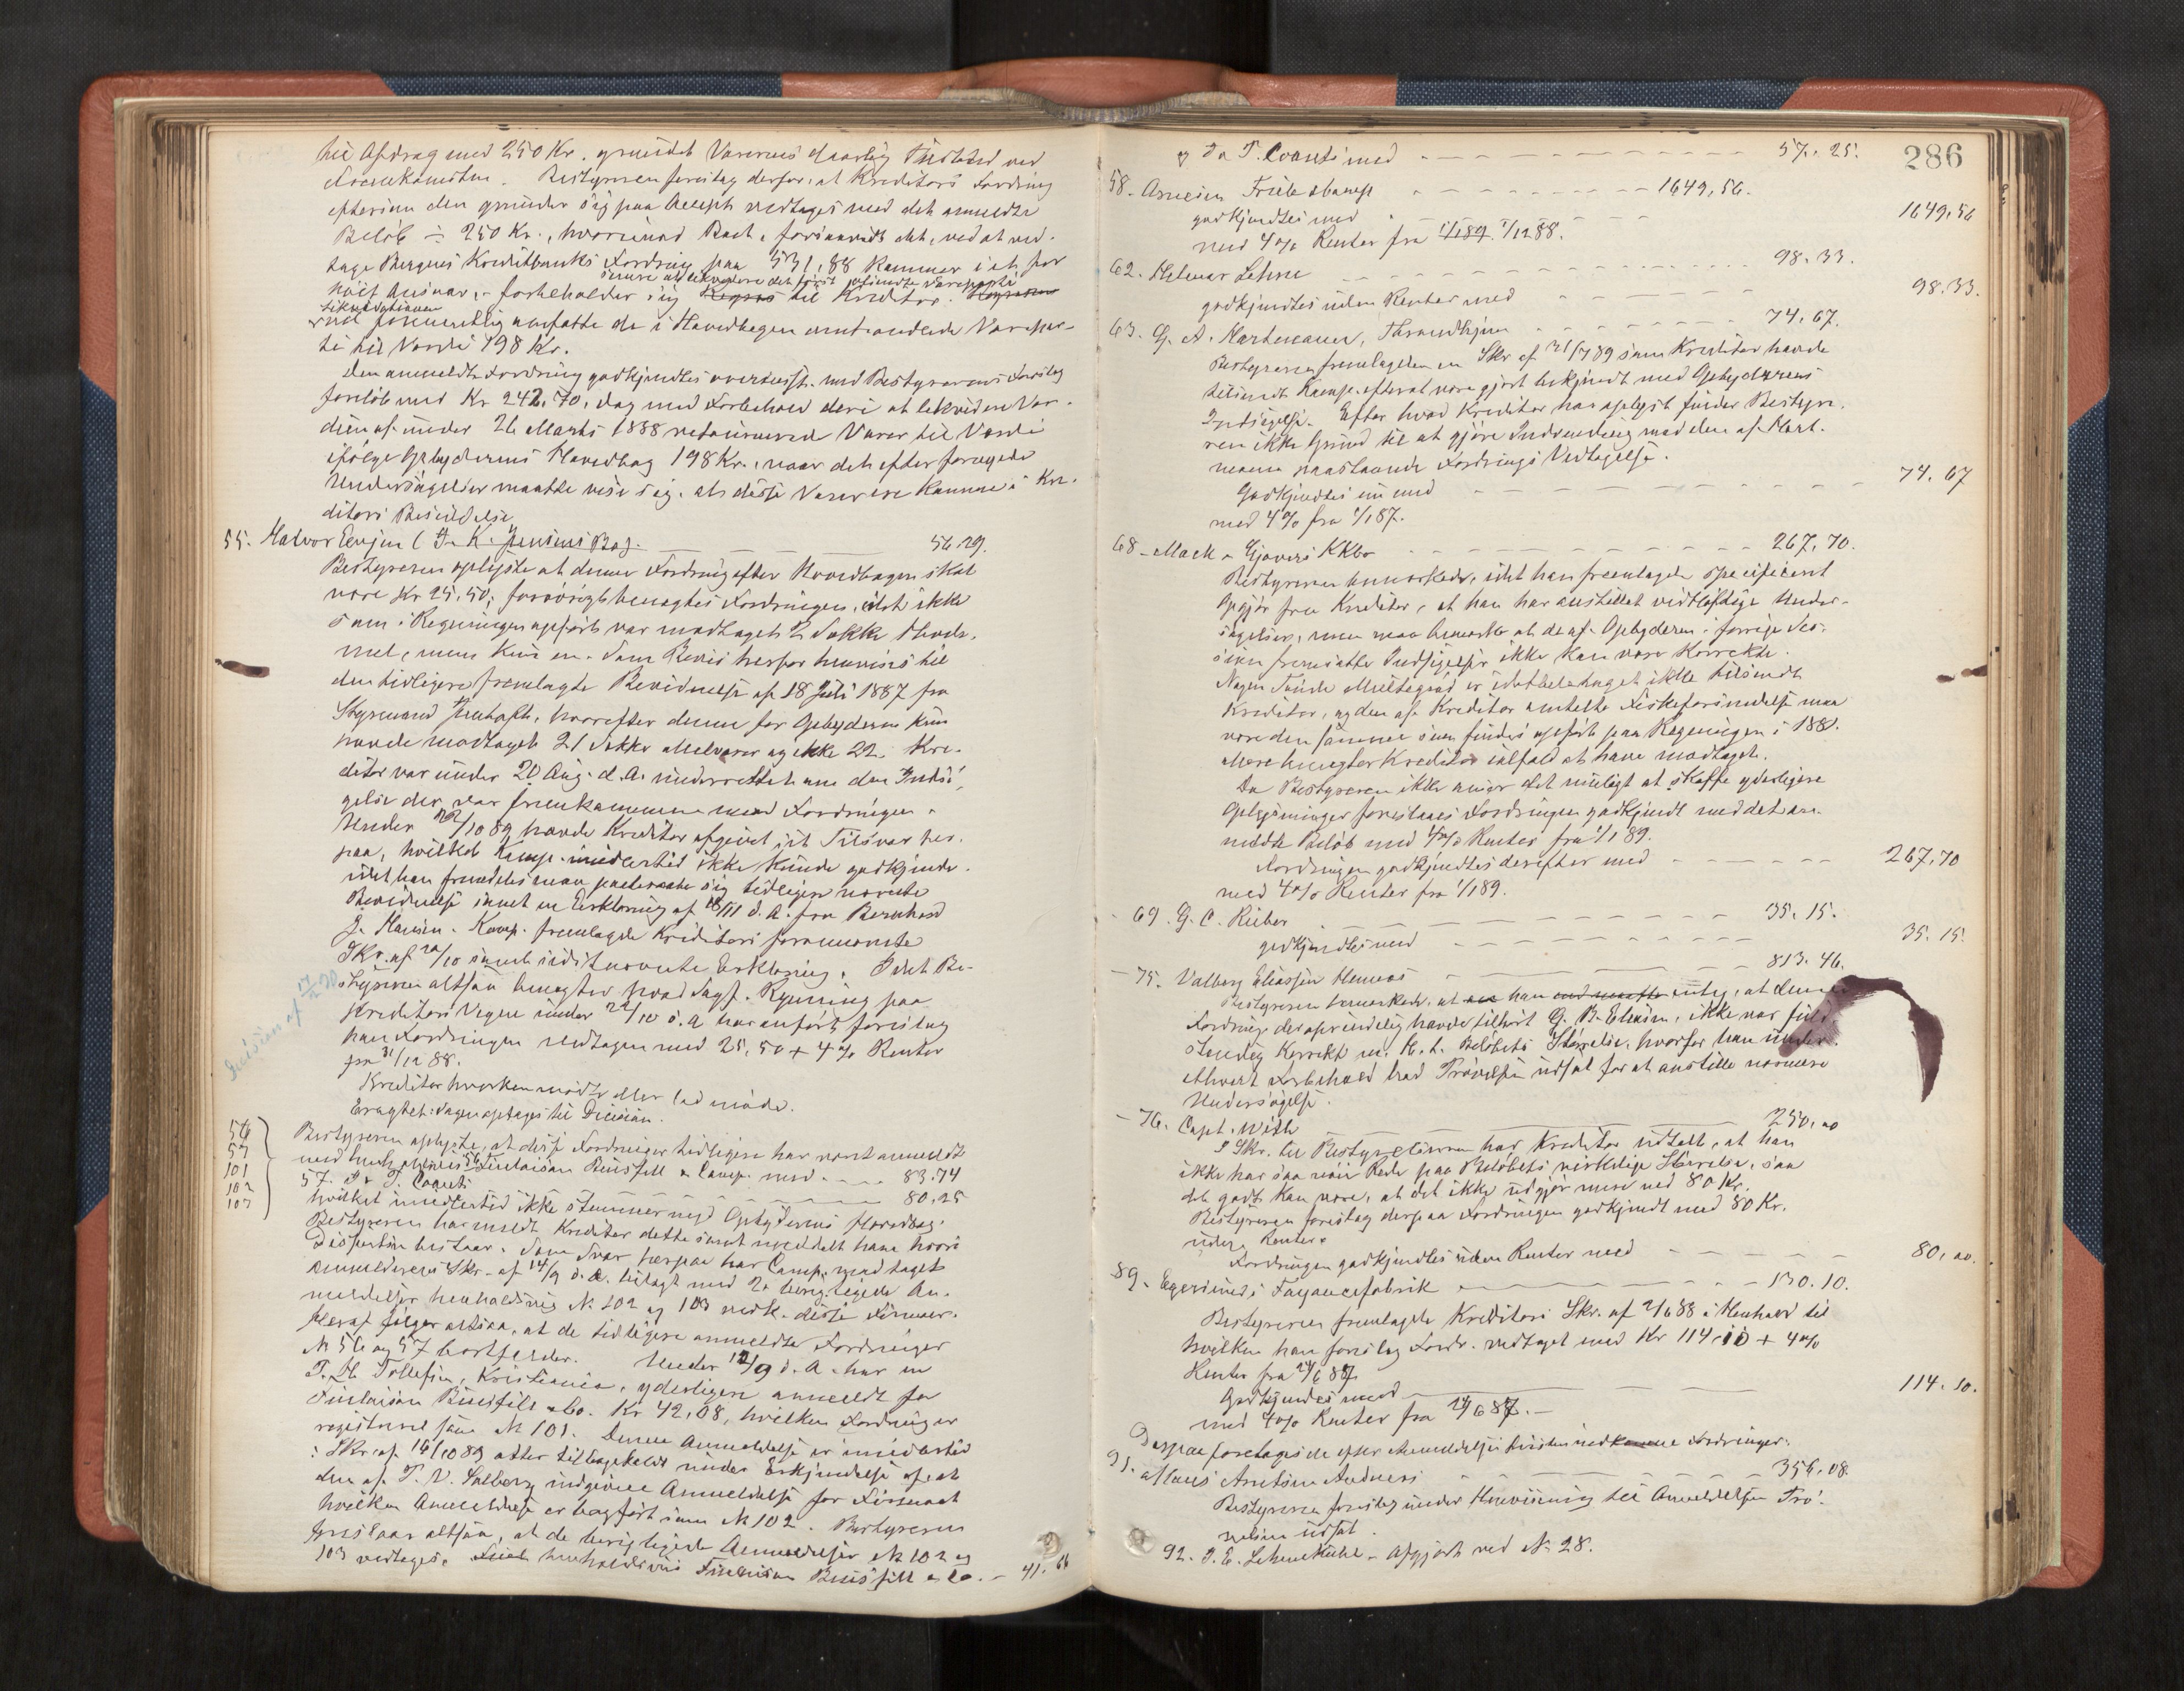 til Afdrag med 250 Kr. grundet Varernes daarlig Tilstand ved
Fremkomsten. Bestyreren foreslog derfor, at Kreditors Fordring
eftersom den grunder sig paa Accept vedtages med det anmeldte
Beløb ÷ 250 Kr., hvorimod Boet, forsaavidt det, ved at ved-
tage Bergens Kreditbanks Fordring paa 531,88 kommer i et for
høit Ansvar, forbeholder sig til Kreditor.
senere at likvidere det først tilsendte Vareparti
Likvidationen
vil formentlig omfatte de i Hovedbogen omhandlede Varepar-
ti til Værdi 198 Kr.
Den anmeldte Fordring godkjendtes overensst. med Bestyrerens Forslag
foreløb med Kr 242,70, dog med Forbehold deri at likvidere Vær-
dien af under 26 Marts 1888 retournerede Varer til Værdi
ifølge Opbyderens Hovedbog 198 Kr., naar det efter foregaaede
Undersøgelser maatte vise sig, at disse Varer ere komne i Kre-
ditors Besiddelse.
55. Halvor Eenjen (F. K. Jensens Bo). 56.29.
Bestyreren oplyste at denne Fordring efter Hovedbogen skal
være Kr 25,50; forøvrigt benegtes Fordringen, idet ikke
som i Regningen opført var modtaget 2 Sække Hvede-
mel, men kun en. Som Bevis herfor henvises til
den tidligere fremlagte Bevidnelse af 18 Juli 1887 fra
Styrmand, hvorefter denne for Opbyderen kun
havde modtaget 21 Sække Melvarer og ikke 22. Kre-
ditor var under 20 Aug. d. A. underrettet om den Indsi-
gelse der var fremkommen mod Fordringen.
Under 22/10 89 havde Kreditor afgivet sit Tilsvar her-
paa, hvilket Komp. imidlertid ikke kunde godkjende,
idet han fremdeles maa paaberaabe sig tidligere nævnte
Bevidnelse samt en Erklæring af 18/11 d. A. fra Bernhard
J. Hansen. Komp. fremlagde Kreditors foranævnte
Skr. af 22/10 samt sidstnævnte Erklæring. Idet Be-
styreren altsaa benegter hvad Sagf. Rynning paa
Kreditors Vegne under 22/10 d. A har anført foreslog
han Fordringen vedtagen med 25,50 + 4% Renter
fra 31/12 88.
Decision af 17/2 90
Kreditor hverken mødte eller lod møde.
Eragtet: Sagen optages til Decision.
56
57
101
102
103
Bestyreren oplyste, at disse Fordringer tidligere har været anmeldt
med henholdsvis 56 Finlaison Bousfill & Comp. med 83.74
57. D. T. Coats 80,25
hvilket imidlertid ikke stemmer med Opbyderens Hovedbog.
Bestyreren har meldt Kreditor dette samt meddelt ham hvori
Differensen bestaar. Som Svar herpaa har Comp. modtaget
Anmelderens Skr. af 14/9 d. A. bilagt med 2 berigtigede An-
meldelser henholdsvis № 102 og 103 vedk. disse Firmaer.
Heraf følger altsaa, at de tidligere anmeldte Fordringer
№ 56 og 57 bortfalder. Under 12/9 d. A. har en
T. H. Tollefsen, Kristiania, yderligere anmeldt for
Finlaison Bousfill & Co. Kr 42,08, hvilken Fordring er
registreret som № 101. Denne Anmeldelse er imidlertid
i Skr. af 14/10 89 atter tilbagekaldt under Erkjendelse af, at
den af T. V. Salberg indgivne Anmeldelse for Firmaet
hvilken Anmeldelse er bogført som № 102. Bestyreren
foreslaar altsaa, at de berigtigede Anmeldelser № 102 og
103 vedtages, henholdsvis Finlaison Bousfill & Co. 41.66
og Da T. Coats med 57.25.
286
58. Arnesen Friele & Comp 1649,56.
godkjendtes med 1649,56
med 4% Renter fra 1/1 89. 1/12 88.
62. Helmer Lehne 98.33.
godkjendtes uden Renter med 98.33.
63. G. A. Hartmann, Throndhjem 74.67.
Bestyreren fremlagde en Skr. af 31/7 89 som Kreditor havde
tilsendt Komp. efterat være gjort bekjendt med Opbyderens
Indsigelse. Efter hvad Kreditor har oplyst finder Bestyre-
ren ikke Grund til at gjøre Indvending mod den af Hart-
mann paastaaede Fordrings Vedtagelse.
Godkjendtes nu med 74.67
med 4% fra 1/1 87.
68. Mack Ejovers KKbo 267,70.
Bestyreren bemærkede, idet han fremlagde specificeret
Opgjør fra Kreditor, at han har anstillet vidtløftige Under-
søgelser, men maa bemærke at de af Opbyderen i forrige Ses-
sion fremsatte Indsigelser ikke kan være korrekte.
Nogen Tønde Multegrød er idethele taget ikke tilsendt
Kreditor, og den af Kreditor omtalte Fiskeforsendelse maa
være den samme som findes opført paa Regningen i 188.
Mere benegter Kreditor ialfald at have modtaget.
Da Bestyreren ikke anser det muligt at skaffe yderligere
Oplysninger foreslaaes Fordringen godkjendt med det an-
meldte Beløb med 4% Renter fra 1/1 89.
Fordringen godkjendtes derefter med 267,70
med 4% Renter fra 1/1 89.
69. G. C. Rieber 35.15.
godkjendtes med 35.15.
75. Valborg Eliassen Hennæs 813.46.
Bestyreren bemærkede, at han antog, at denne
Fordring der oprindelig havde tilhørt G. B. Eliasen, ikke var fuld-
stendig korrekt m. H. t. Beløbets Størrelse, hvorfor han under
ethvert Forbehold bad Prøvelsen udsat for at anstille nærmere
Undersøgelse.
76. Capt. With 250,00
I Skr. til Bestyrelsen har Kreditor udtalt, at han
ikke har saa nøie Rede paa Beløbets virkelige Størrelse, saa
det godt kan være, at det ikke udgjør mere end 80 Kr.
Bestyreren foreslog derpaa Fordringen godkjendt med 80 Kr.
uden Renter.
Fordringen godkjendtes uden Renter med 80,00.
89. Egersunds Fayancefabrik 130.10.
Bestyreren fremlagde Kreditors Skr. af 2/6 88 i Henhold til
hvilken han foreslog Fordr. vedtaget med Kr 114,10 + 4%
Renter fra 24/6 87
Godkjendes med 114.10.
med 4% Renter fra 24/6 87.
Derpaa foretoges de efter Anmeldelsesfristen indkomne Fordringer.
91. Hans Arntsen Andenes 356.08.
Bestyreren foreslog under Henvisning til Anmeldelsen Prø-
velsen udsat.
92. J. E. Lehmkuhl - Afgjort ved № 28.